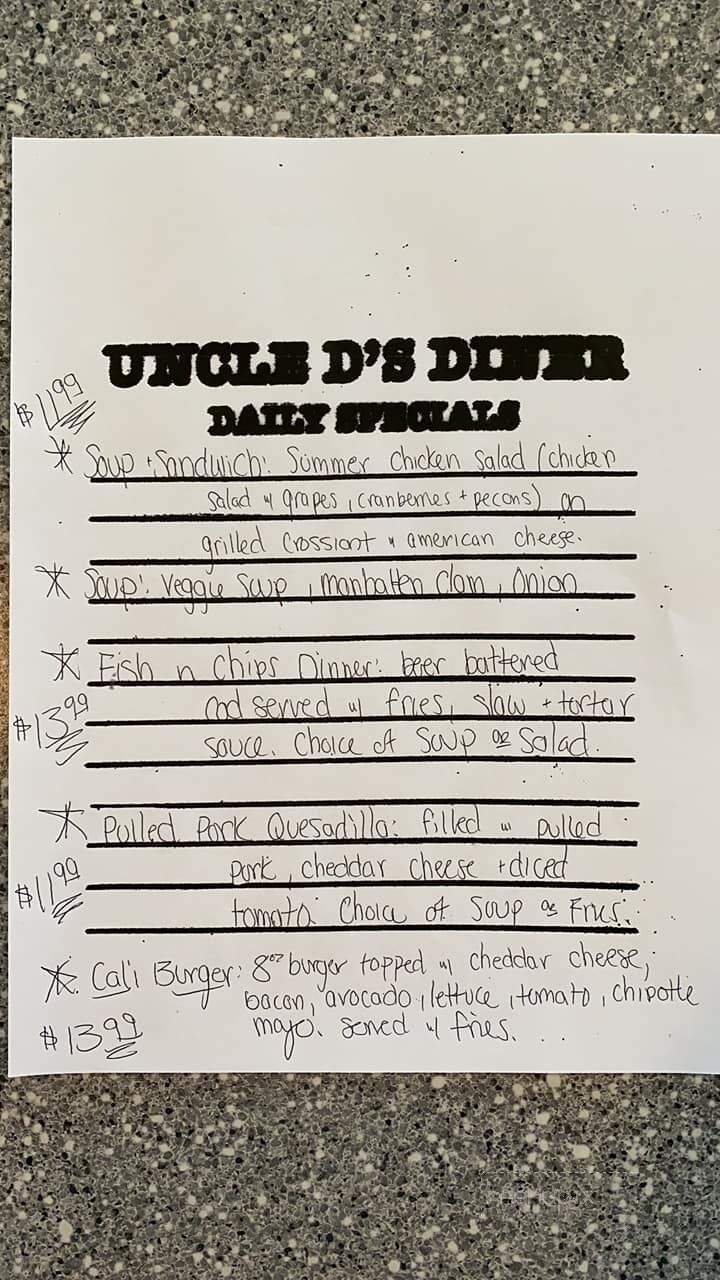 UNCLE D'S DINER
DAILY SPECIALS
$11.99
* Soup + Sandwich: Summer chicken salad (chicken
salad w/ grapes, cranberries + pecons) on
grilled Crossiant w/ american cheese.
* Soup: Veggie Soup, manhatten Clam, Onion
* Fish n Chips Dinner: beer battered
$13.99
cod served w/ fries, slaw + tartar
sauce. Choice of Soup or Salad.
* Pulled Pork Quesadilla: filled w/ pulled
$11.99
pork, cheddar cheese + diced
tomato. Choice of Soup or Fries.
* Cali Burger: 8oz burger topped w/ cheddar cheese,
bacon, avocado, lettuce, tomato, chipotle
$13.99
mayo. served w/ fries.